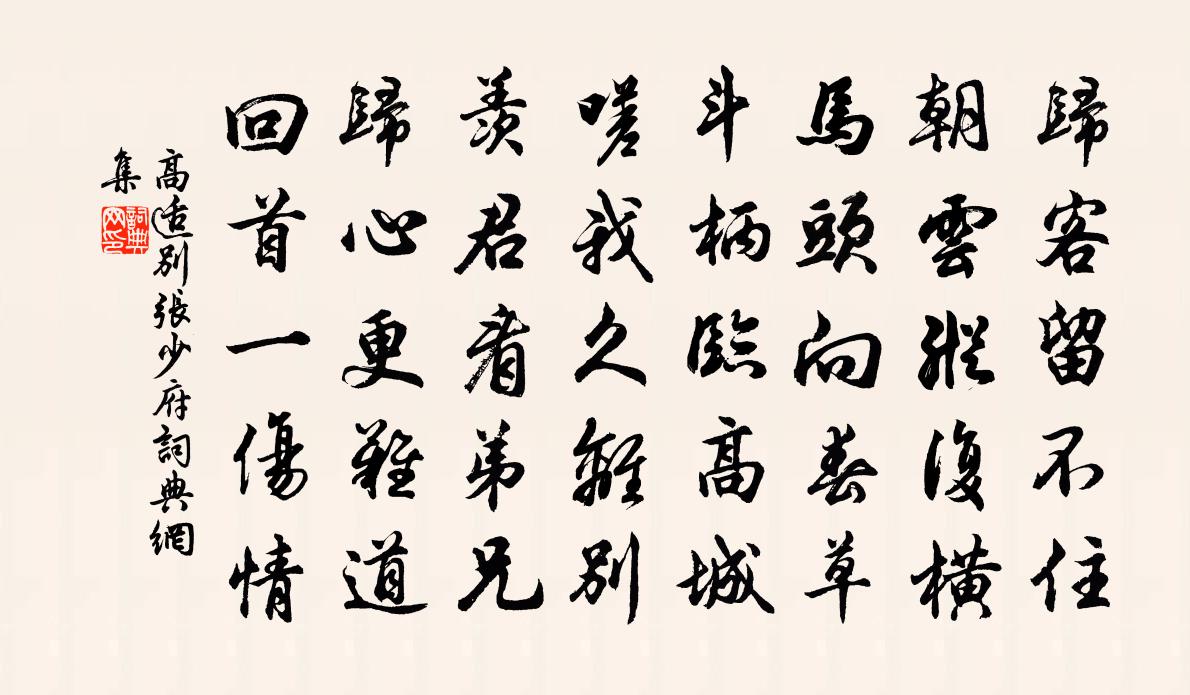 歸客留不住
朝雲縱復橫
馬頭向春草
斗柄臨高城
嗟我久離別
羨君看弟兄
歸心更難道
回首一傷情
高适別張少府詞典網
集
詞典網印